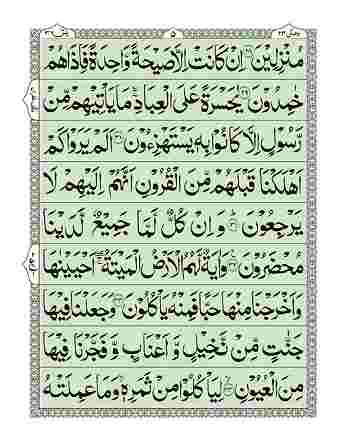 وَمَالِىَ ٢٣ ٥ يٰسٓ ٣٦
مُنْزِلِيْنَ ﴿٢٨﴾ اِنْ كَانَتْ اِلَّا صَيْحَةً وَّاحِدَةً فَاِذَا هُمْ
خٰمِدُوْنَ ﴿٢٩﴾ يٰحَسْرَةً عَلَى الْعِبَادِ ۚ مَا يَاْتِيْهِمْ مِّنْ
رَّسُوْلٍ اِلَّا كَانُوْا بِهٖ يَسْتَهْزِءُوْنَ ﴿٣٠﴾ اَلَمْ يَرَوْا كَمْ
اَهْلَكْنَا قَبْلَهُمْ مِّنَ الْقُرُوْنِ اَنَّهُمْ اِلَيْهِمْ لَا
يَرْجِعُوْنَ ﴿٣١﴾ وَ اِنْ كُلٌّ لَّمَّا جَمِيْعٌ لَّدَيْنَا
مُحْضَرُوْنَ ﴿٣٢﴾ وَاٰيَةٌ لَّهُمُ الْاَرْضُ الْمَيْتَةُ ۖ اَحْيَيْنٰهَا
وَاَخْرَجْنَا مِنْهَا حَبًّا فَمِنْهُ يَاْكُلُوْنَ ﴿٣٣﴾ وَجَعَلْنَا فِيْهَا
جَنّٰتٍ مِّنْ نَّخِيْلٍ وَّ اَعْنَابٍ وَّ فَجَّرْنَا فِيْهَا
مِنَ الْعُيُوْنِ ﴿٣٤﴾ لِيَاْكُلُوْا مِنْ ثَمَرِهٖ ۙ وَمَا عَمِلَتْهُ